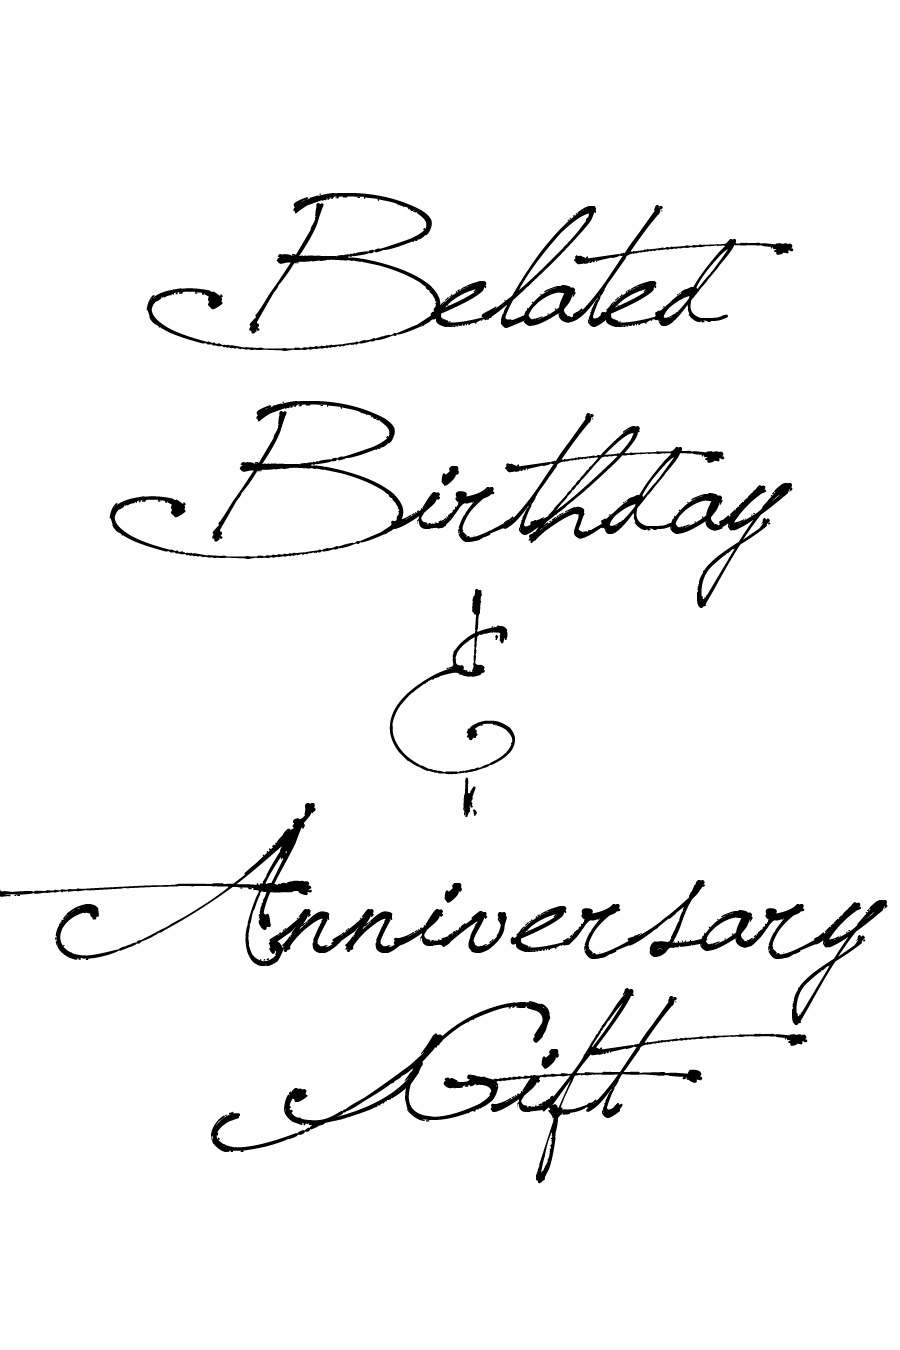 Belated
Birthday
&
Anniversary
Gift